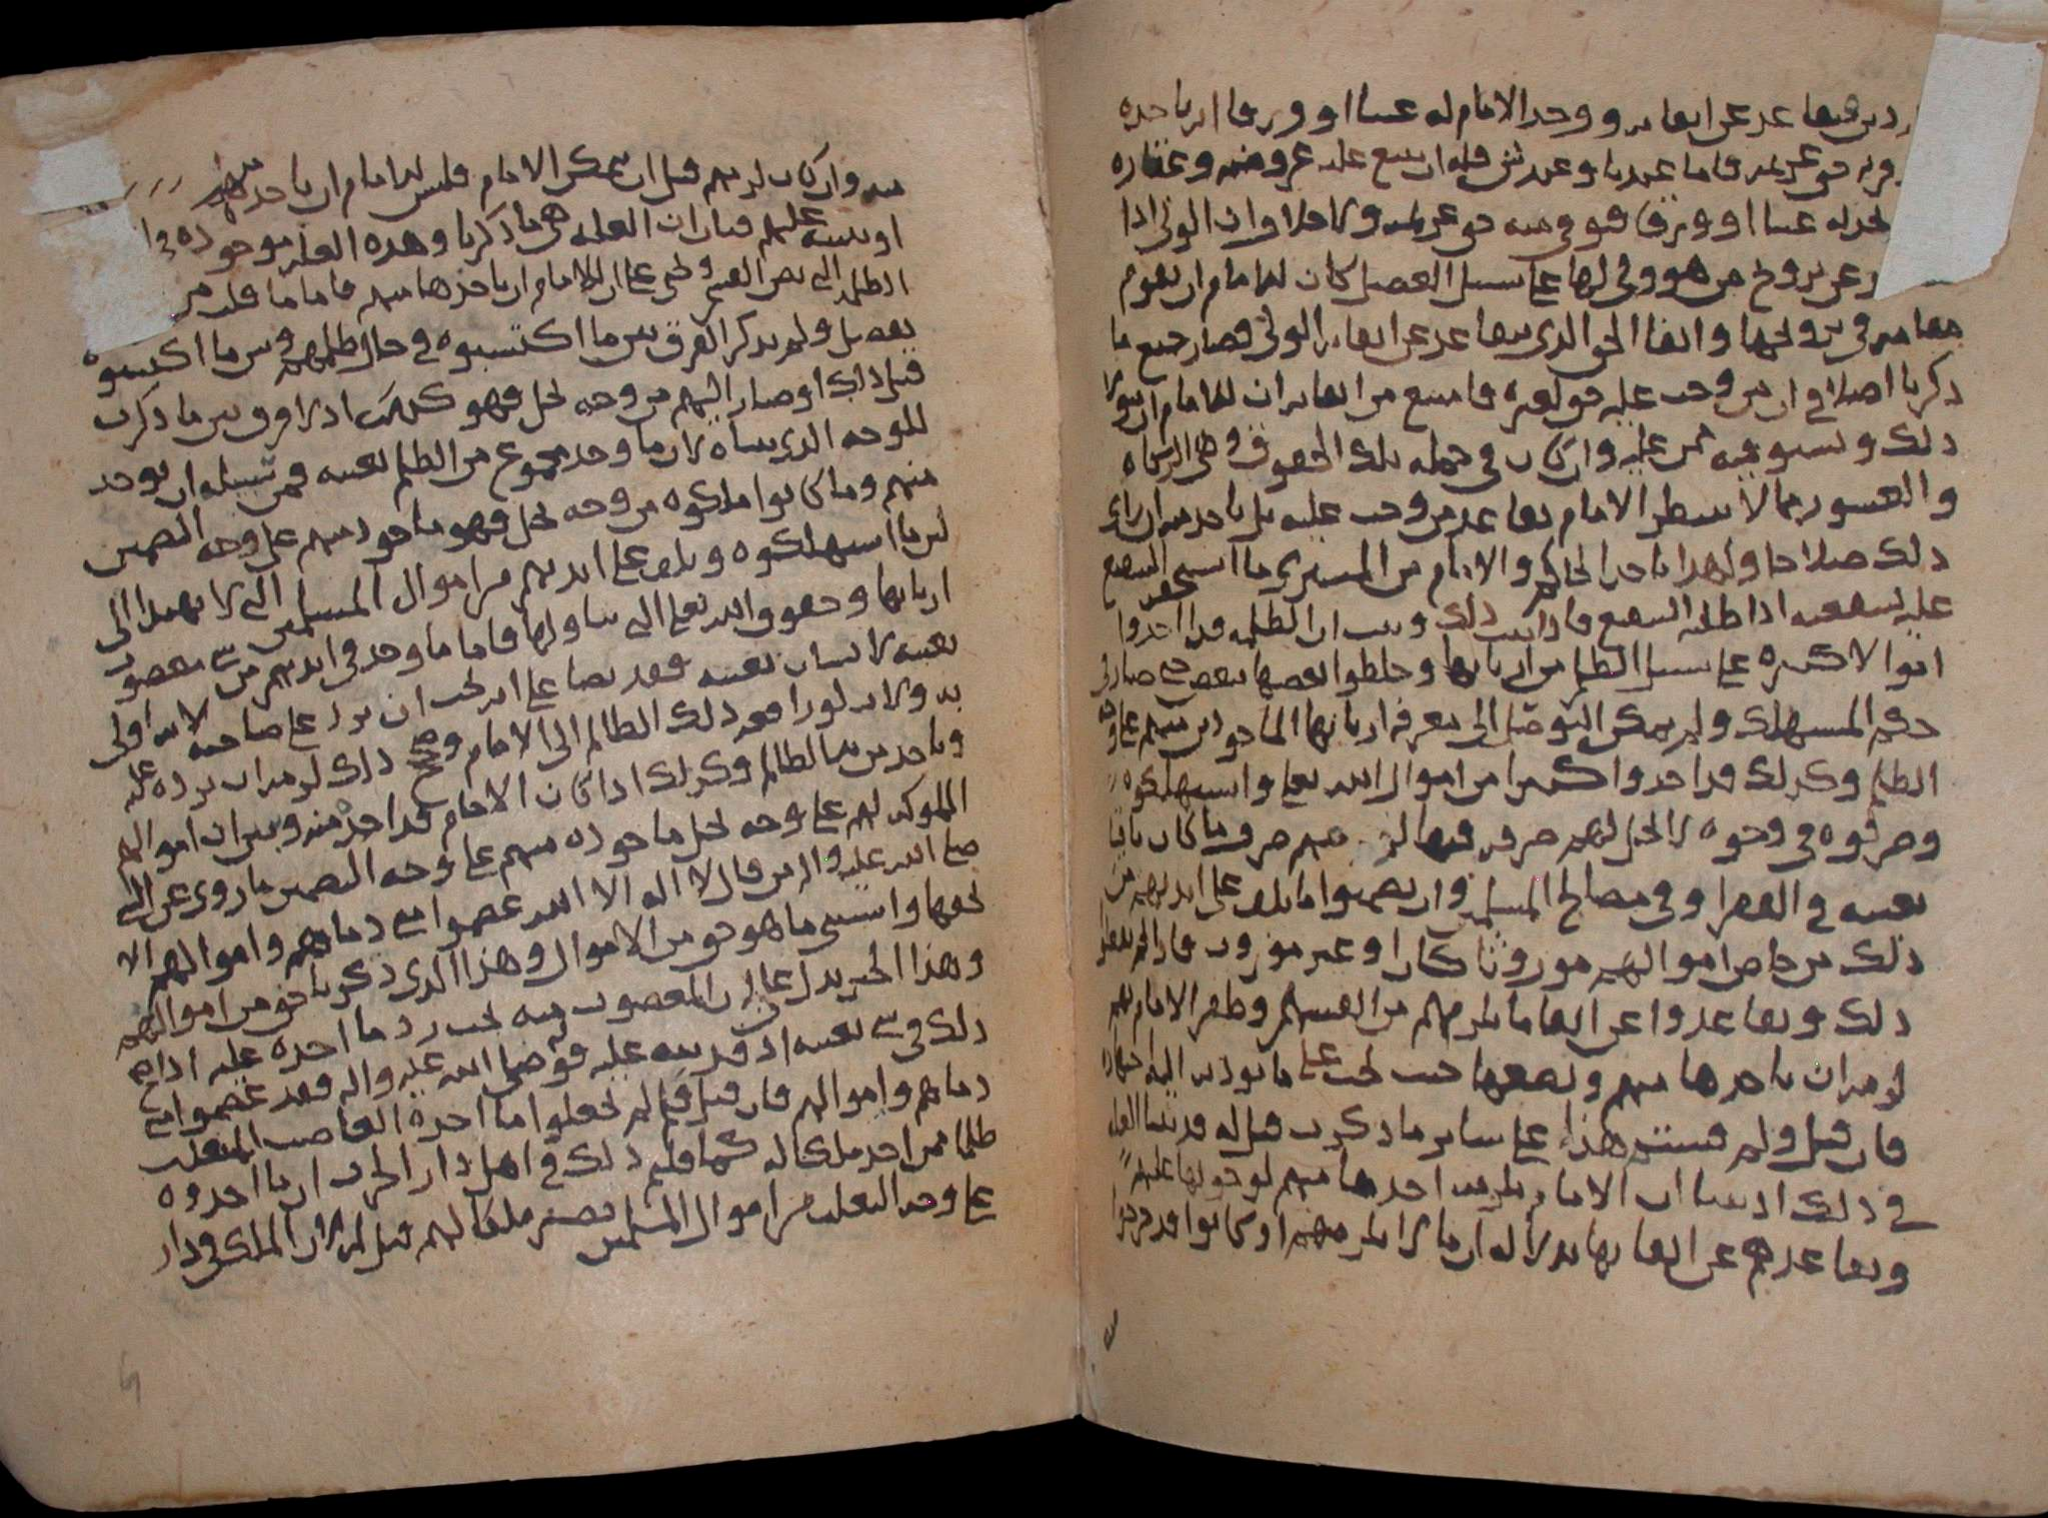 دين فتقاعد عن ايفايه ووجد الامام له عينا او ورقا انه ياخذه
حق غريمه فاما عندنا وعند ش فله ان يبيع عليه عروضه وعقاره
يجد له عينا او ورقا فيوفي منه حق غريمه ولا خلاف ان الولي اذا
عن تزويج من هو ولي لها على سبيل العضل كان للامام ان يقوم
مقامه في تزويجها وايفا الحق الذي يتقاعد عن ايفايه الولي فصار جميع ما
ذكرنا اصلا في ان من وجب عليه حق لغيره فامتنع من ايفايه ان للامام ان يتولا
ذلك ويستوفيه ممن عليه وان كان في جملة تلك الحقوق وهي الزكاة
والعشور مما لا ينتظر الامام تقاعد من وجب عليه بل ياخذ منه ان راى
ذلك صلاحا ولهذا ياخذ الحاكم والامام من المشتري ما استحق الشفيع
عليه بشفعته اذا طلبه الشفيع فاذا ثبت ذلك وثبت ان الظلمة قد اخذوا
اموالا كثيرة على سبيل الظلم من اربابها وخلطوا بعضها ببعض حتى صار في
حكم المستهلك ولم يمكن التوصل الى معرفة اربابها الماخوذ منهم على وجه
الظلم وكذلك قد اخذوا كثيرا من اموال الله تعالى واستهلكوه
وصرفوه في وجوه لا تحل لهم صرفه فيها منهم صرف ما كان باقيا
بعينه في الفقرا وفي مصالح المسلمين وان يضمنوا ما تلف على ايديهم من
ذلك من خاص اموالهم موروثا كان او غير موروث فاذا لم يفعلوا
ذلك وتقاعدوا عن ايفا ما يلزمهم من انفسهم وظفر الامام بهم
لزمه ان ياخذها منهم ويضعها حيث يجب على ما يوديه اليه اجتهاده
فان قيل ولم قستم هذا على ساير ما ذكرت قيل له قد بينا العلة
في ذلك اذ بينا ان الامام يلزمه اخذها منهم لوجوبها عليهم
وتقاعدهم عن ايفايها بدلالة ان ما لا يلزمهم او كانوا قد خرجوا
منه وان كان لزمهم قبل ان يمكن الامام فليس للامام ان ياخذ منهم
او يبيعه عليهم فبان ان العلة هي ما ذكرنا وهذه العلة موجودة في
الظلمة
تفصيل ولم يذكر الفرق بين ما اكتسبوه في حال ظلمهم وبين ما اكتسبوه
قبل ذلك او صار اليهم من وجه يحل فهو كذلك اذ لا فرق بين ما ذكرت
للوجه الذي بيناه لان ما وجد مجموع من الظلم بعينه فمن سبيله ان يوخذ
منهم وما كانوا ملكوه من وجه يحل فهو ماخوذ منهم على وجه التضمين
لما استهلكوه وتلف على ايديهم من اموال المسلمين التي لا يهتدا الى
اربابها وحقوق الله تعالى التي تناولها فاما ما وجد في ايديهم من شي مغصوب
بعينه لانسان بعينه فقد نصا على انه يجب ان يرد على صاحبه لانه اولى
به ولانه لو رافعه ذلك الظالم الى الامام وصح ذلك لزمه ان يرده عليه
وياخذ من الظالم وكذلك اذا كان الامام قد اخذ منه وبين ان اموالهم
المملوكة لهم على وجه يحل ماخوذة منهم على وجه التضمين ما روي عن النبي
صلى الله عليه واله من قال لا اله الا الله عصموا مني دماهم واموالهم الا
بحقها واستثنى ما هو حق من الاموال وهذا الذي ذكرنا حق من اموالهم
وهذا الخبر يدل على ان المغصوب منه يجب رد ما اخذه عليه اذا صح
ذلك في شي بعينه اذ قد نبه عليه قوله صلى الله عليه واله فقد عصموا مني
دماهم واموالهم فان قيل فلم لم تجعلوا ما اخذه الغاصب المتغلب
ظلما ممن اخذ ملكا له كما قلتم ذلك في اهل دار الحرب ان ما اخذوه
على وجه التغلب من اموال المسلمين يصير ملكا لهم قيل له لان الملك في دار